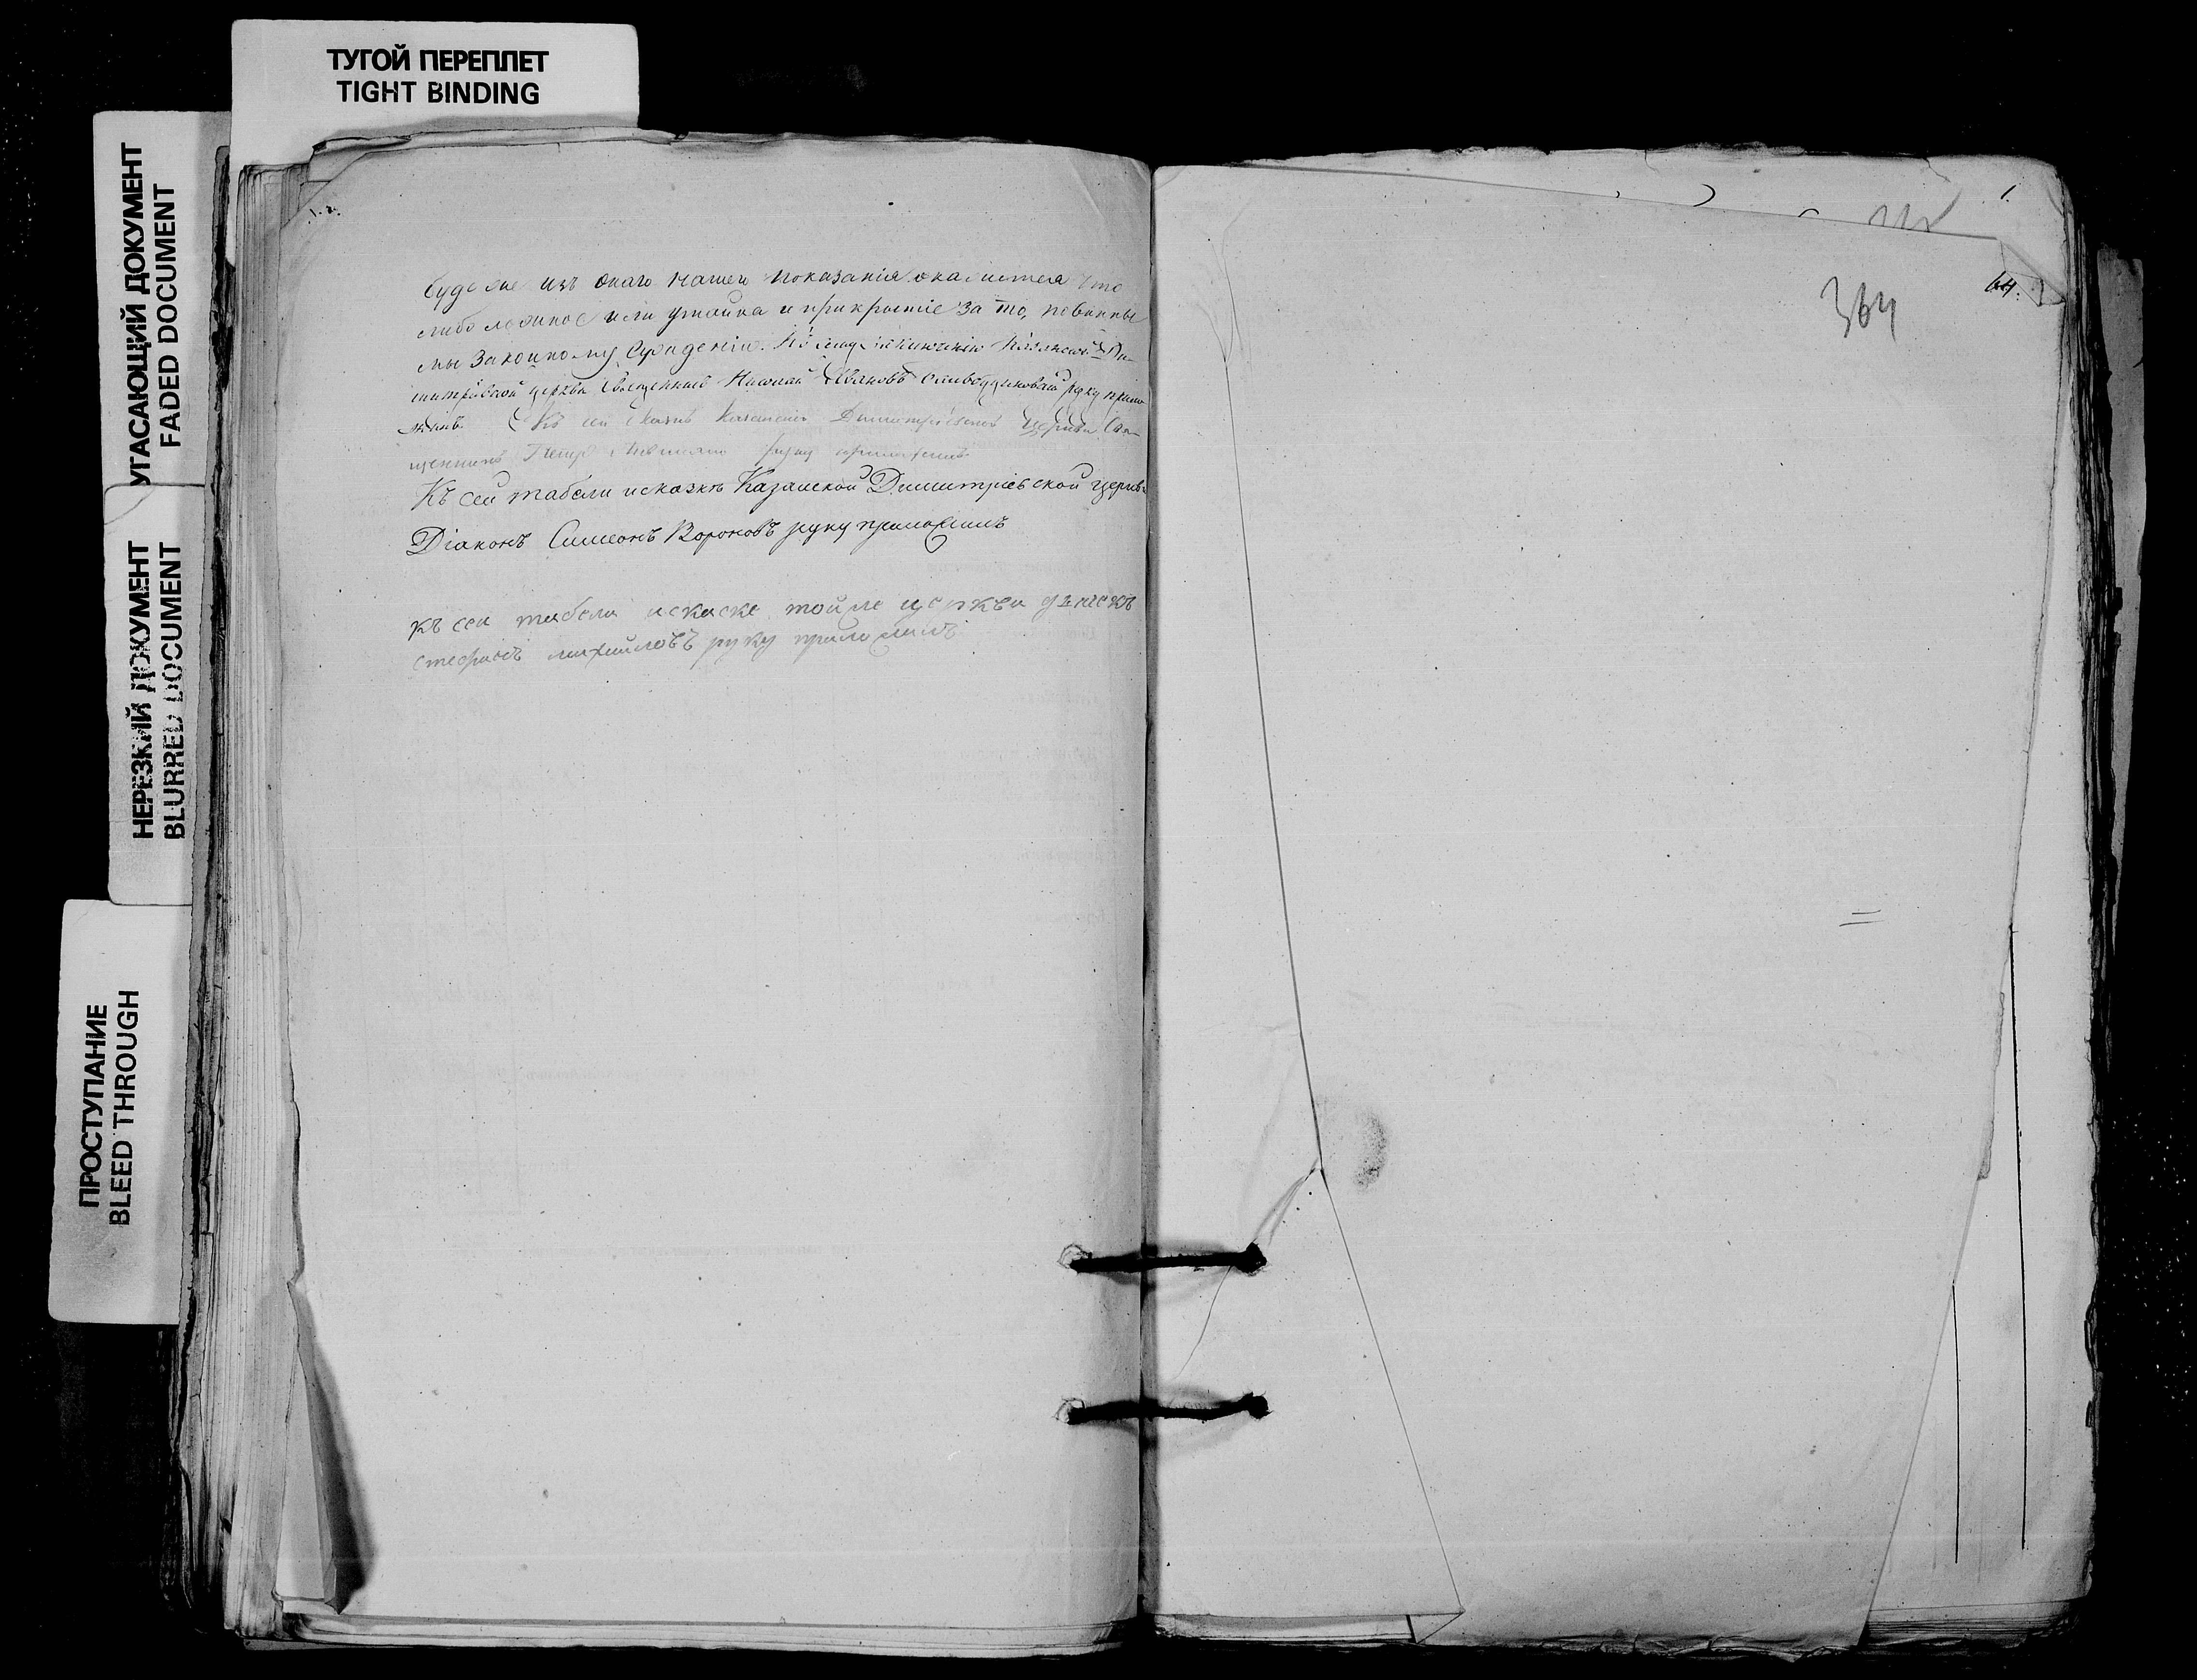 ТУГОЙ ПЕРЕПЛЕТ
TIGHT BINDING
УГАСАЮЩИЙ ДОКУМЕНТ
FADED DOCUMENT
НЕРЕЗКИЙ ДОКУМЕНТ
BLURRED DOCUMENT
ПРОСТУПАНИЕ
BLEED THROUGH
буде же изъ онаго нашего показанія окажется что
либо ложное или утайка и прикрытіе за то, повинны
мы законному сужденію. Казанской Ди-
митріевской церкви священникъ Ивановъ руку прило
жилъ Къ сей Казанской Димитріевской Церкви Свя-
щенникъ Петръ руку приложилъ
Къ сей табели исказкѣ Казанской Димитріевской церкви
Діаконъ Симеонъ Вороновъ руку приложилъ
къ сеи табели искаске тойже церкви дьячекъ
стефанъ михайловъ руку приложилъ
1.
364
64.